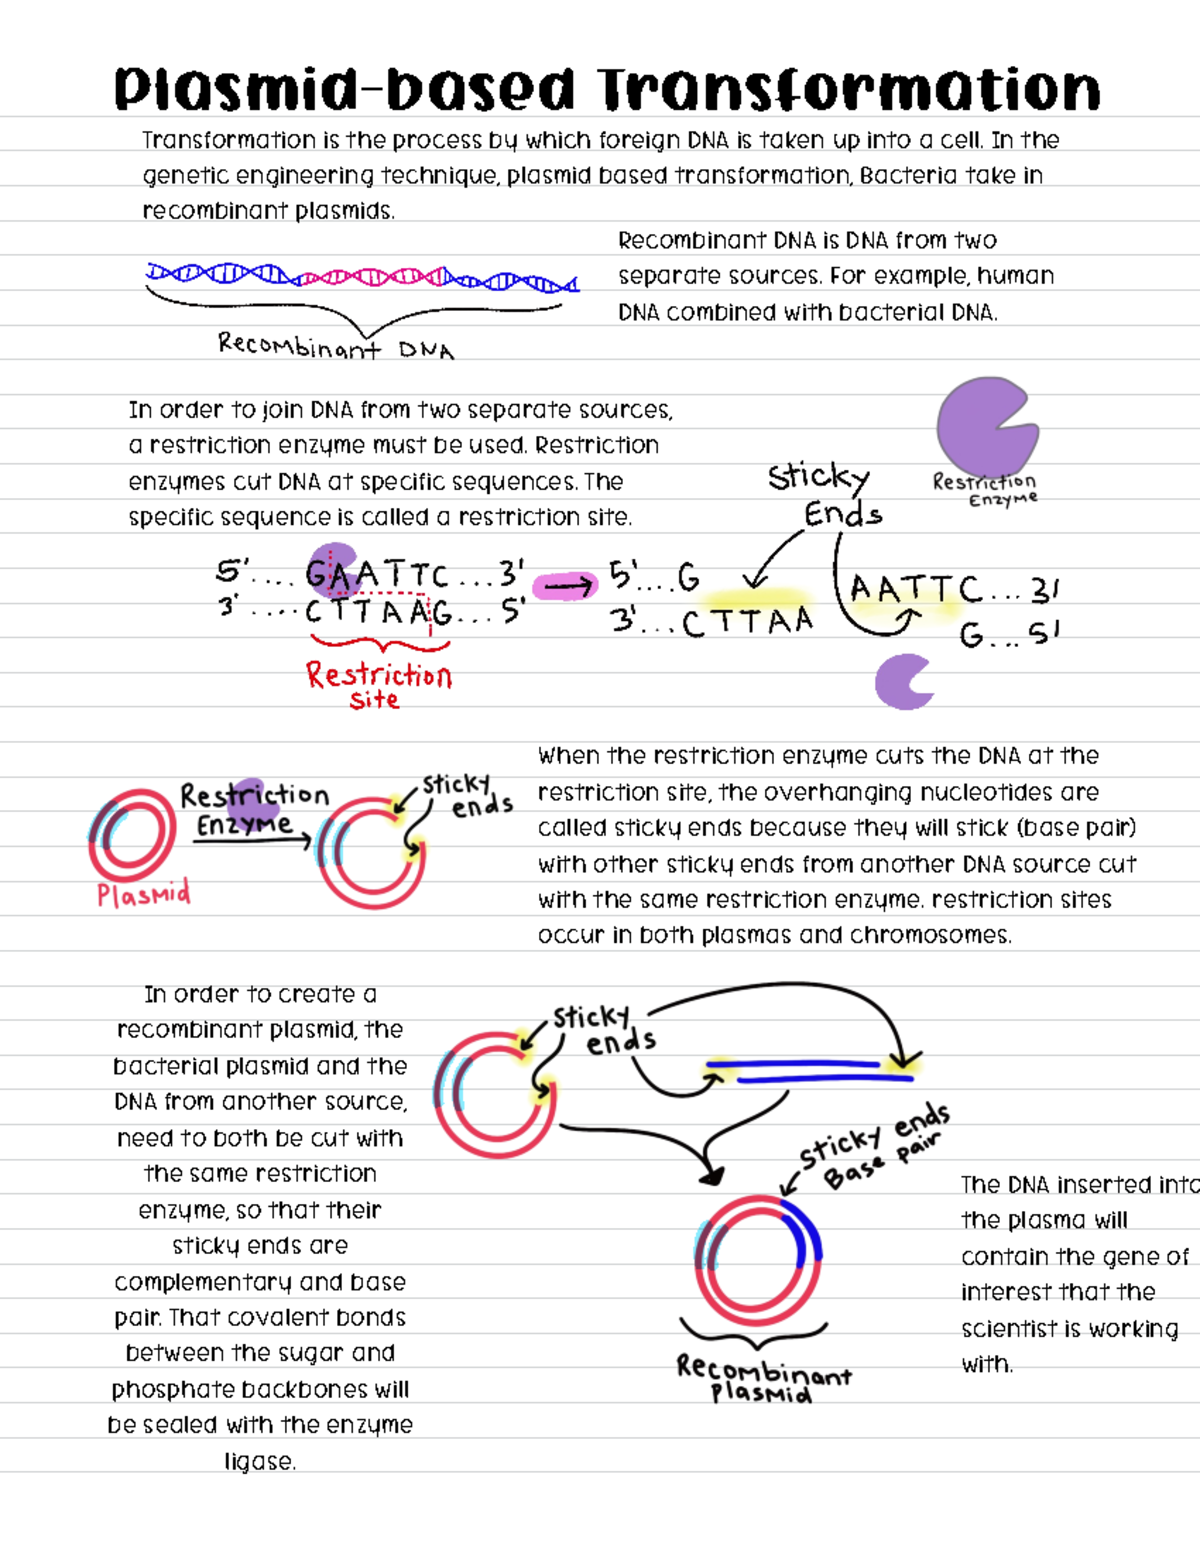 Plasmid-based Transformation
Transformation is the process by which foreign DNA is taken up into a cell. In the
genetic engineering technique, plasmid based transformation, Bacteria take in
recombinant plasmids.
Recombinant DNA is DNA from two
separate sources. For example, human
DNA combined with bacterial DNA.
Recombinant DNA
In order to join DNA from two separate sources,
a restriction enzyme must be used. Restriction
enzymes cut DNA at specific sequences. The
specific sequence is called a restriction site.
Restriction
Enzyme
Sticky
Ends
5'.... GAATTC ...3'
3' ....CTTAAG... 5'
Restriction
site
5'...G
3'...CTTAA
AATTC... 3'
G...5'
Restriction
Enzyme
Plasmid
Sticky
ends
When the restriction enzyme cuts the DNA at the
restriction site, the overhanging nucleotides are
called sticky ends because they will stick (base pair)
with other sticky ends from another DNA source cut
with the same restriction enzyme. restriction sites
occur in both plasmas and chromosomes.
In order to create a
recombinant plasmid, the
bacterial plasmid and the
DNA from another source,
need to both be cut with
the same restriction
enzyme, so that their
sticky ends are
complementary and base
pair. That covalent bonds
between the sugar and
phosphate backbones will
be sealed with the enzyme
ligase.
Sticky
ends
Sticky ends
Base pair
Recombinant
Plasmid
The DNA inserted into
the plasma will
contain the gene of
interest that the
scientist is working
with.